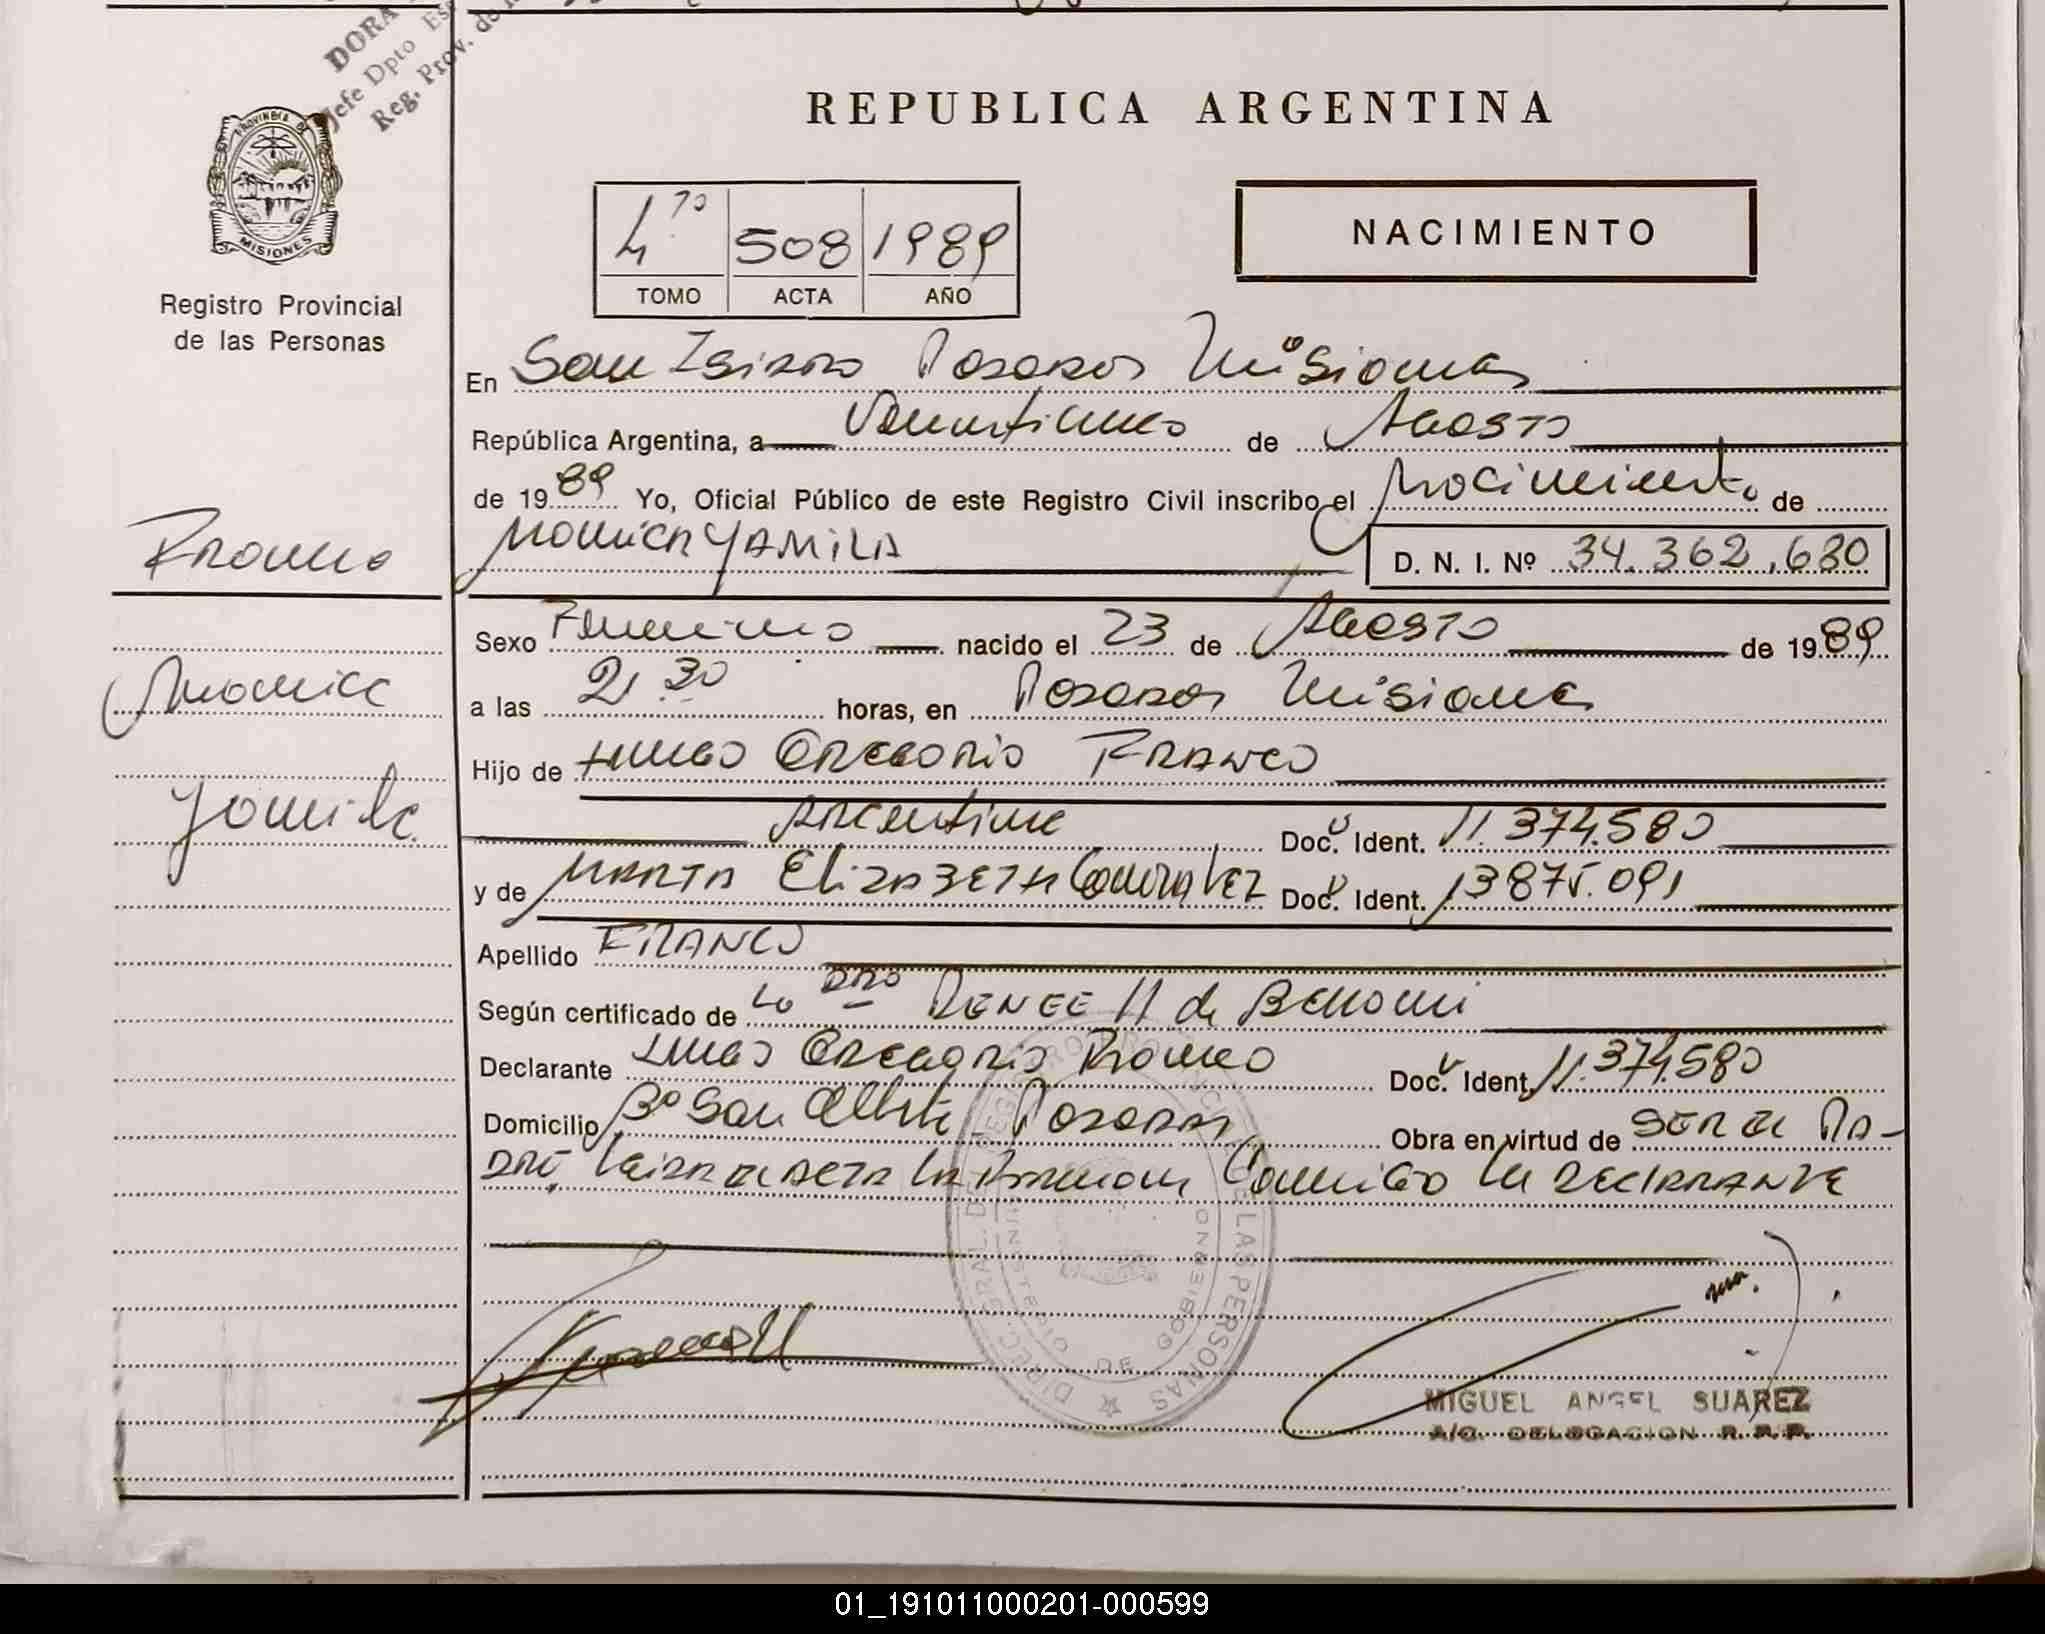 DORA
Jefe Dpto
Reg. Prov. de
PROVINCIA DE
MISIONES
Registro Provincial
de las Personas
REPUBLICA ARGENTINA
NACIMIENTO
4to 508 1989
TOMO ACTA AÑO
En San Isidro Posadas Misiones
República Argentina, a Veinticinco de Agosto
de 1989 Yo, Oficial Público de este Registro Civil inscribo el Nacimiento de
MONICA YAMILA D. N. I. Nº 34.362.680
Franco
Monica
Yamila
Sexo Femenino nacido el 23 de Agosto de 1989
a las 21 30 horas, en Posadas Misiones
Hijo de HUGO GREGORIO FRANCO
Argentino Doc. Ident. 11.374.580
y de MARTA ELIZABETH Gonzalez Doc. Ident. 13875.091
Apellido FRANCO
Según certificado de La Dra RENEE H de Bellomi
Declarante HUGO GREGORIO Franco Doc. Ident. 11.374.580
Domicilio Bº San Alberto Posadas Obra en virtud de SER el PA-
DRE, Leida el ACTA LA Firman Conmigo El DECLARANTE
DIREC. GRAL. DEL REGISTRO PROVINCIAL DE LAS PERSONAS
MINISTERIO DE GOBIERNO
MIGUEL ANGEL SUAREZ
A/C. DELEGACION R. P. P.
01_191011000201-000599